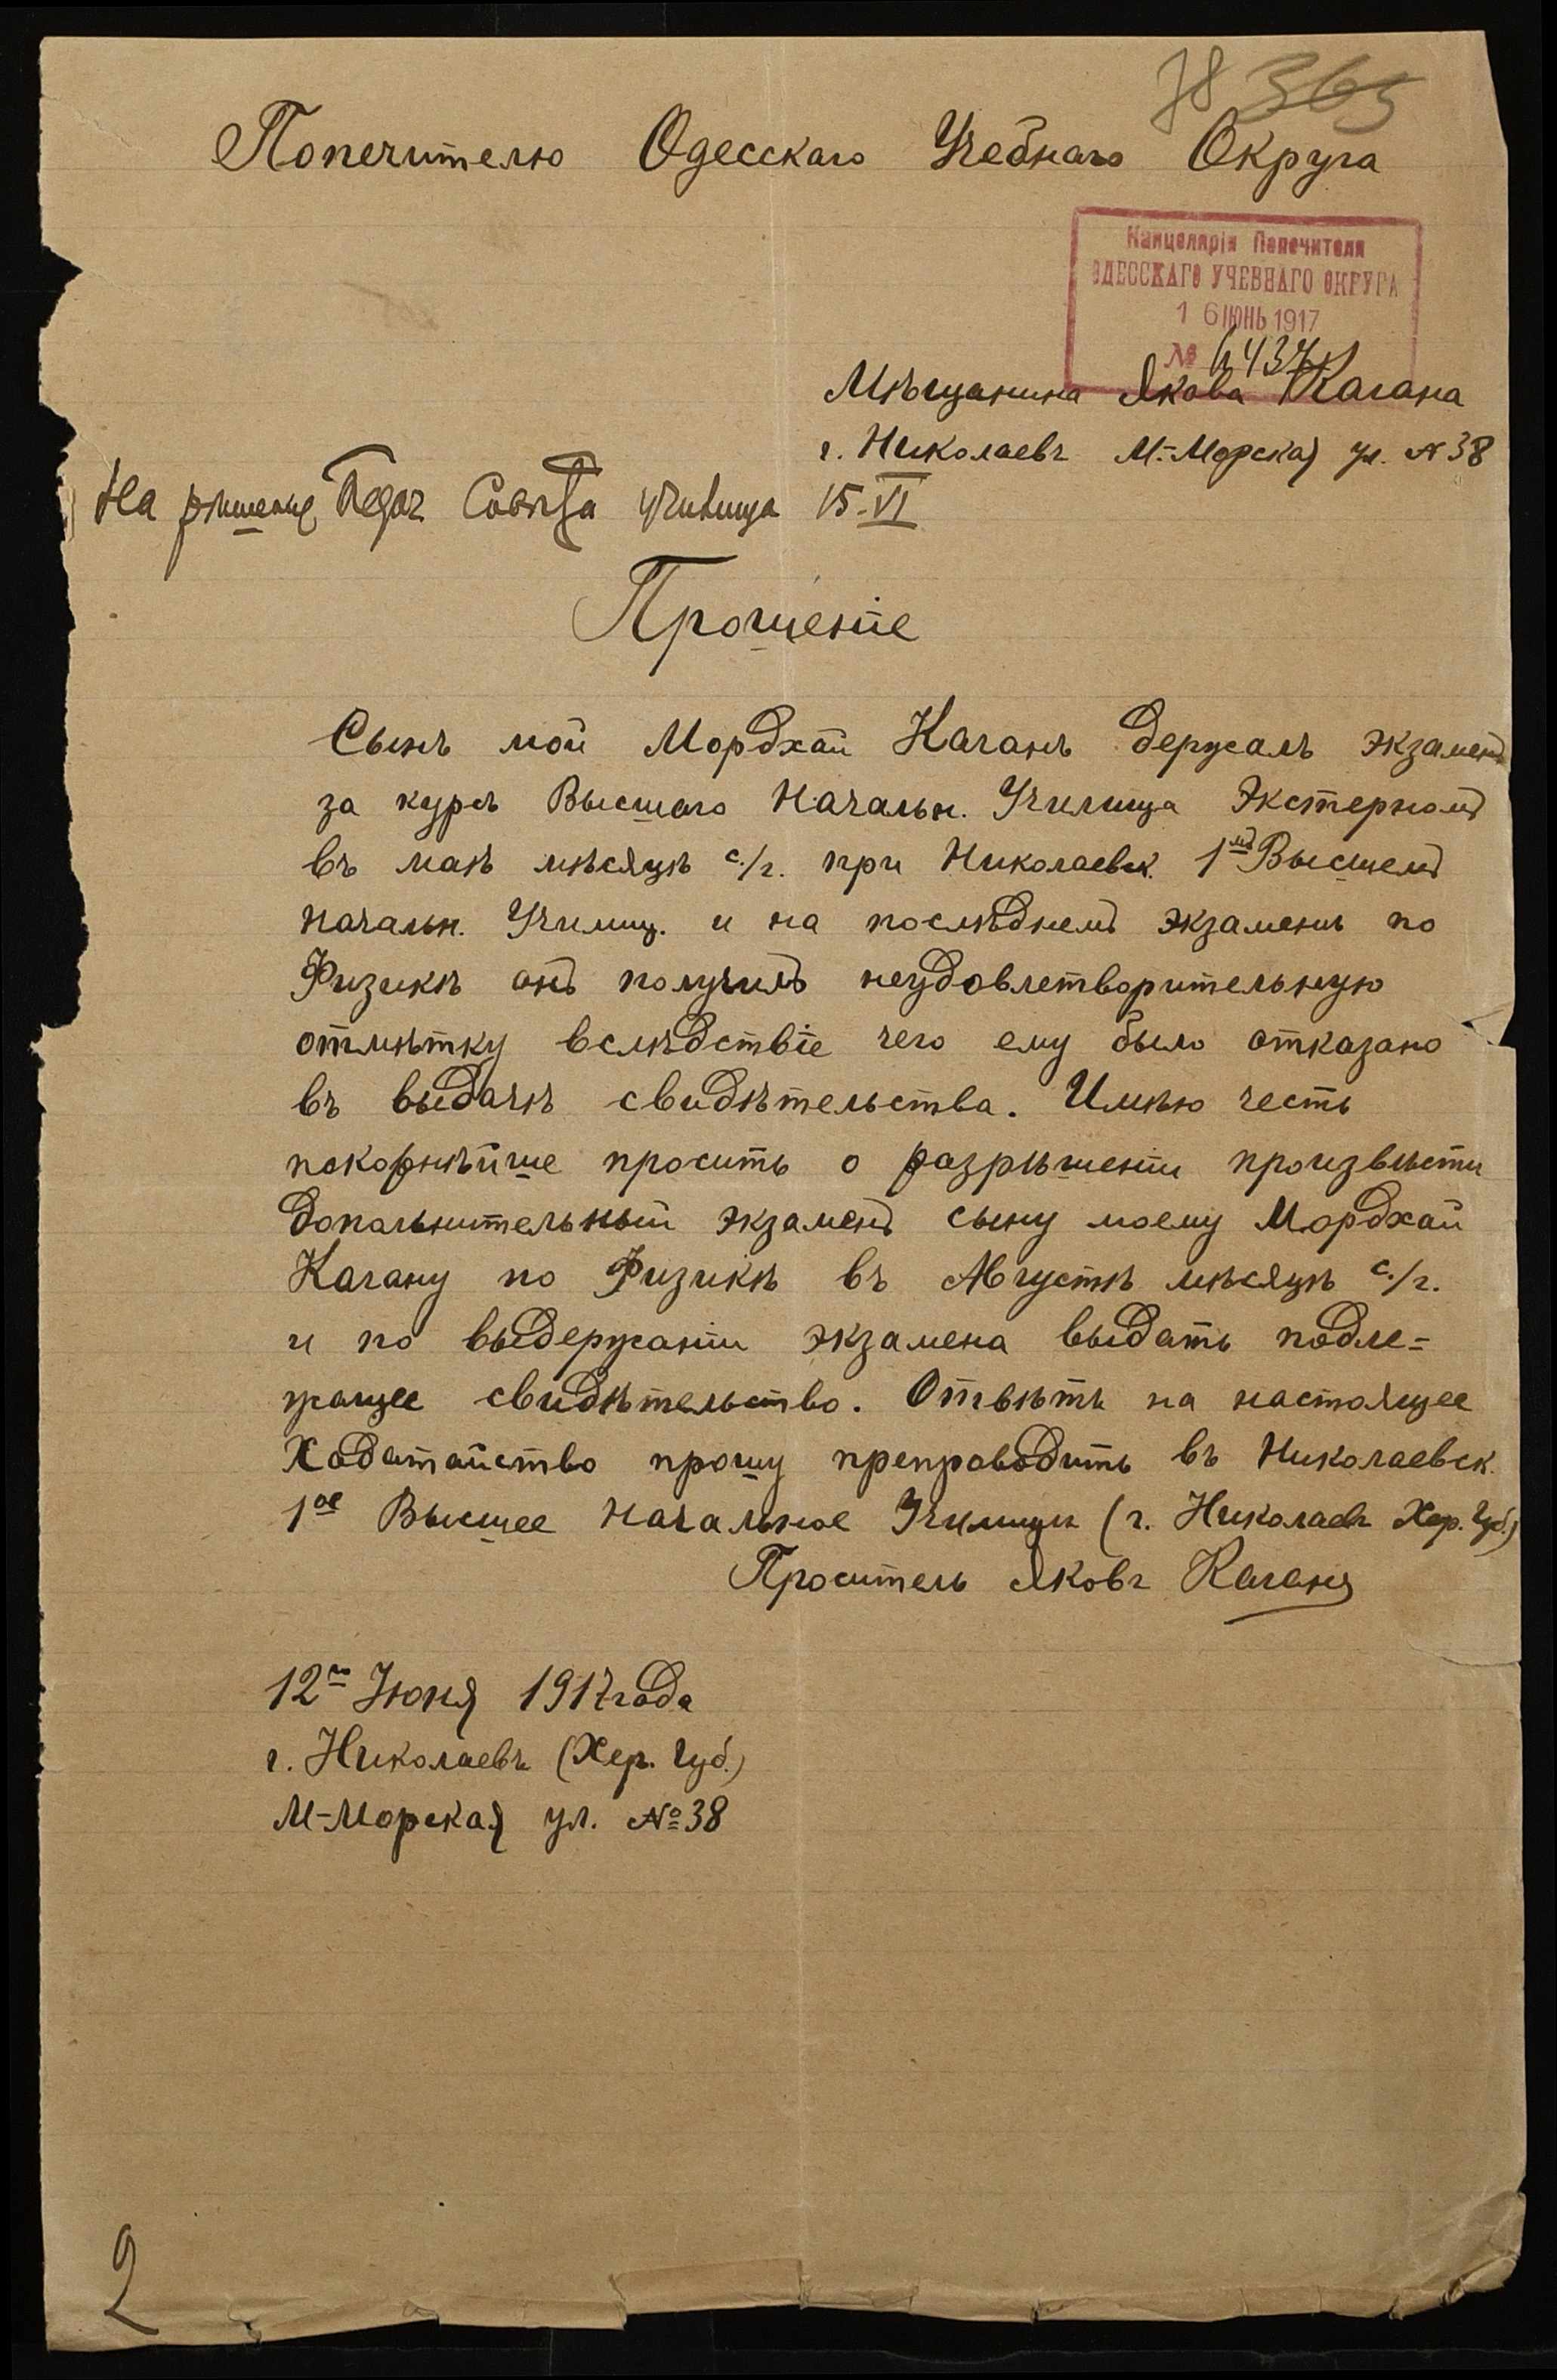 78 365
Попечителю Одесскаго Учебнаго Округа
Канцелярія Попечителя
ОДЕССКАГО УЧЕБНАГО ОКРУГА
16 ІЮНЬ 1917
№
Мѣщанина Якова Кагана
г. Николаевъ М.-Морская ул. № 38
На рѣшеніе Педаг Совѣта училища 15-VI
Прошеніе
Сынъ мой Мордхай Каганъ держалъ экзаменъ
за курсъ Высшаго Начальн. Училища Экстерномъ
въ маѣ мѣсяцѣ с./г. при Николаевск. 1мъ Высшемъ
Начальн. Училищ. и на послѣднемъ экзаменѣ по
Физикѣ онъ получилъ неудовлетворительную
отмѣтку вслѣдствіе чего ему было отказано
въ выдачѣ свидѣтельства. Имѣю честь
покорнѣйше просить о разрѣшеніи произвѣсти
дополнительный экзаменъ сыну моему Мордхай
Кагану по Физикѣ въ Августѣ мѣсяцѣ с./г.
и по выдержаніи экзамена выдать подле=
жащее свидѣтельство. Отвѣтъ на настоящее
Ходатайство прошу препроводить въ Николаевск.
1ое Высшее Начальное Училище (г. Николаевъ Хер. Губ.)
Проситель Яковъ Каганъ
12го Іюня 1917 года
г. Николаевъ (Хер. Губ.)
М-Морская ул. № 38
2